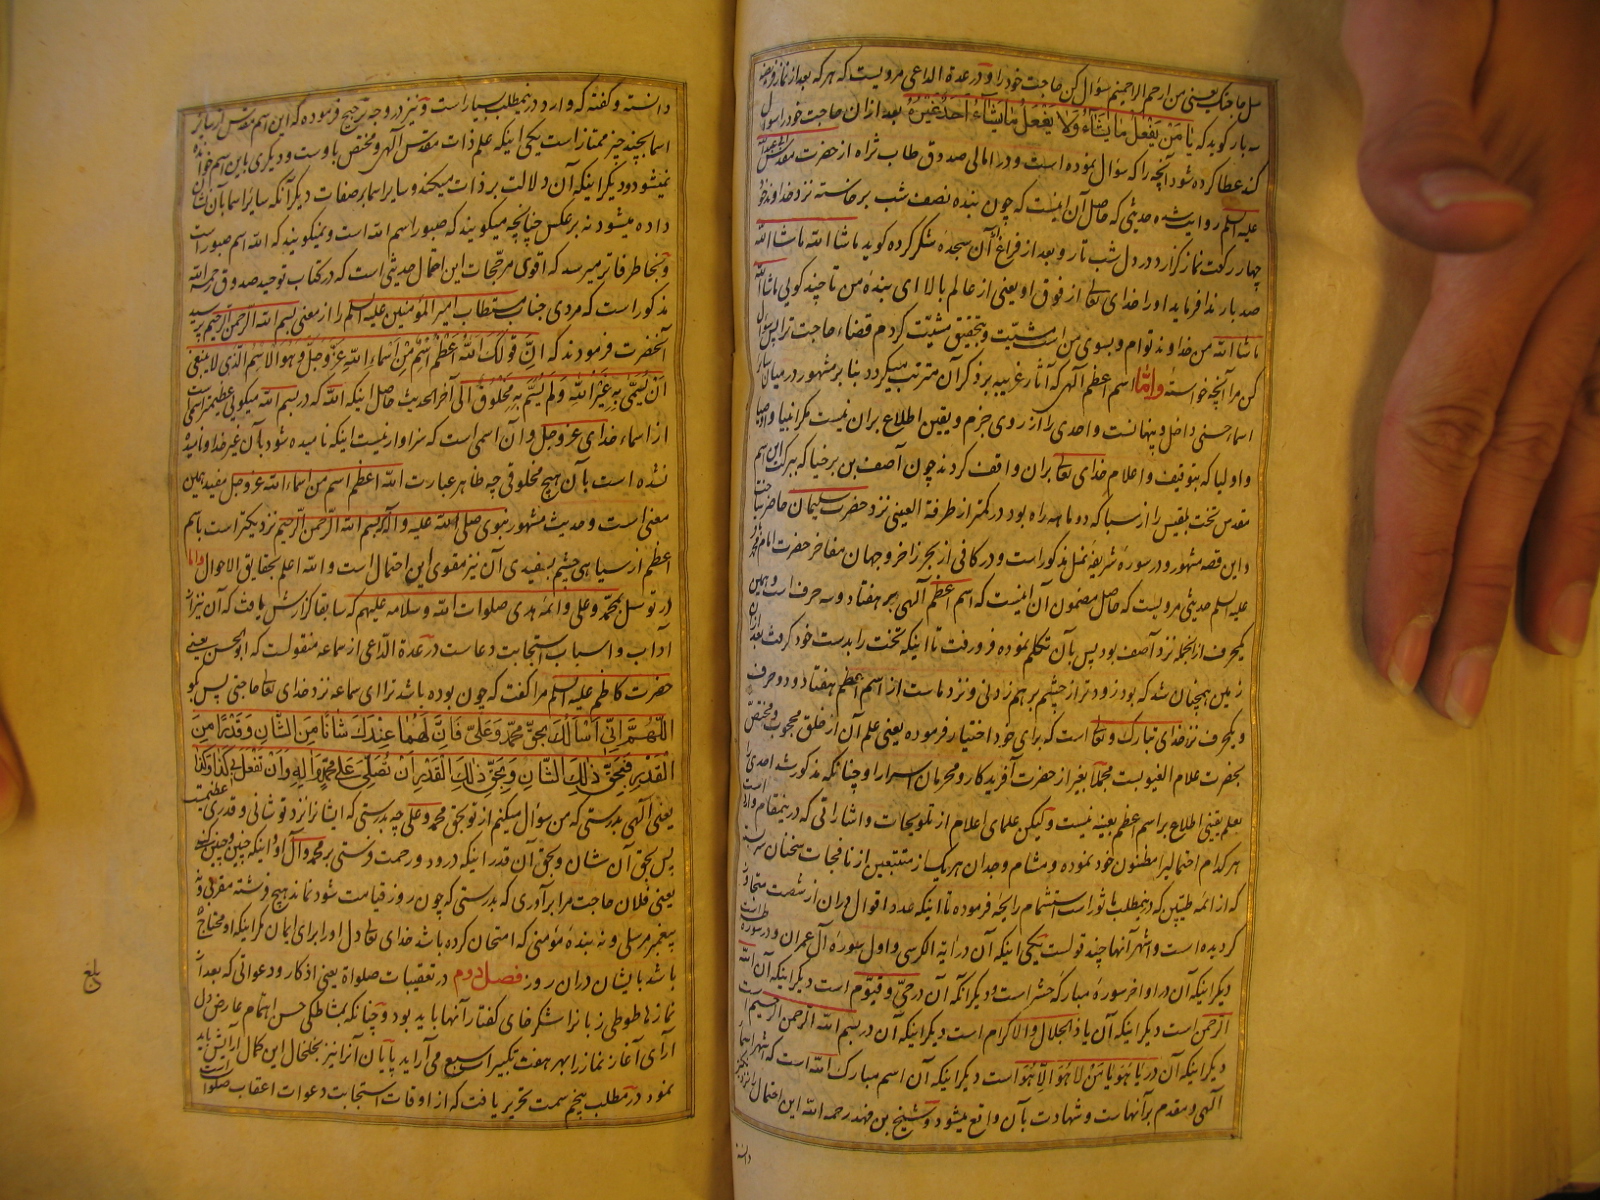 سل حاجتك یعنی من ارحم الراحمینم سؤال کن حاجت خود را و در عدة الداعی مرویست که هر که بعد از نماز فریضه
سه بار گوید که یا مَنْ یَفْعَلُ ما یَشاءُ وَلا یَفْعَلُ ما یَشاءُ اَحَدٌ غَیْرُهُ بعد از ان حاجت خود را سؤال
کند عطا کرده شود آنچه را که سؤال نموده است و در امالی صدوق طاب ثراه از حضرت مقدس
علیه السلم روایت شده حدیثی که حاصل آن اینست که چون بنده نصف شب برخاسته نزد خداوند خود
چهار رکعت نماز گزارد در دل شب تار و بعد از فراغ آن سجده شکر کرده گوید ماشا الله ماشا الله
صد بار ندا فرماید او را خدای تعالی از فوق او یعنی از عالم بالا ای بنده من تا چند گوئی ماشا الله
ماشا الله من خداوند توام و بسوی من است مشیّت و بتحقیق مشیّت کردم قضاء حاجت ترا پس سؤال
کن مرا آنچه خواسته وامّا اسم اعظم آلهی که آثار غریبه بر ذکر آن مترتب میگردد بنا بر مشهور در میان سایر
اسماء حسنی داخل و پنهانست و احدی را از روی جزم و یقین اطلاع بران نیست مگر انبیا و اوصیا
و اولیا که بتوقیف و اعلام خدای تعالی بران واقف گردند چون آصف بن برخیا که ببرکت این اسم
مقدس تخت بلقیس را از سبا که دو ماهه راه بود در کمتر از طرفة العینی نزد حضرت سلیمان حاضر ساخت
و این قصه مشهور و در سورهٔ شریفهٔ نمل مذکور است و در کافی از بحر زاخر و جهان مفاخر حضرت امام محمد باقر
علیه السلم حدیثی مرویست که حاصل مضمون آن اینست که اسم اعظم آلهی بر هفتاد و سه حرف است و همین
یکحرف از انجمله نزد آصف بود پس بآن تکلم نموده فرو رفت تا اینکه تخت را بدست خود گرفت بعد ازان
زمین همچنان شد که بود زودتر از چشم بر هم زدنی و نزد ماست از اسم اعظم هفتاد و دو حرف
و یکحرف نزد خدای تبارک و تعالی است که برای خود اختیار فرموده یعنی علم آن از خلق محجوب و مختصّ
بحضرت علام الغیوبست مجملا بغیر از حضرت آفریدکار و محرمان اسرار او چنانکه مذکور شد احدی را
بعلم یقینی اطلاع بر اسم اعظم بعینه نیست و لیکن علمای اعلام از تلویحات و اشاراتی که در ینمقام وارد است
هر کدام احتمالیرا مظنون خود نموده و مشام وجدان هر یک از متتبعین از نافجات سخنان سربسته
که از ائمه طیبین که در ینمطلب ماثور است استشمام رایحه فرموده تا اینکه عدد اقوال دران از شصت متجاوز
گردیده است و اشهر آنها چند قولست یکی اینکه آن در ایة الکرسی و اول سورهٔ آل عمران و در سوره طه است
دیگر اینکه آن در اواخر سورهٔ مبارکهٔ حشر است و دیگر آنکه آن در حیّ و قیّوم است دیگر اینکه آن الله
الرحمن است دیگر اینکه آن یا ذالجلال والاکرام است دیگر اینکه آن در بسم الله الرحمن الرحیم است
دیگر اینکه آن در یا هُوَ یا مَنْ لا هُوَ اِلّا هُوَ است دیگر اینکه آن اسم مبارک الله است که اشهر اسماء
آلهی و مقدم بر آنهاست و شهادت بآن واقع میشود و شیخ بن فهد رحمه الله این احتمال را
دانسته
دانسته و گفته که وارد در ینمطلب بسیار است و نیز در وجه ترجیح فرموده که این اسم مقدس از سایر
اسما بچند چیز ممتاز است یکی اینکه علم ذات مقدس آلهی و مختص باوست و دیگری باین اسم خوانده
نمیشود و دیگر اینکه آن دلالت بر ذات میکند و سایر اسما بر صفات دیگر آنکه سایر اسما بآن نشان
داده میشود نه بر عکس چنانچه میگویند که صبور اسم الله است و نمیگویند که الله اسم صبور است
و بخاطر فاتر میرسد که اقوی مرجحات این احتمال حدیثی است که در کتاب توحید صدوق رحمه الله
مذکور است که مردی جناب مستطاب امیر المؤمنین علیه السلم را از معنی بسم الله الرحمن الرحیم پرسید
آنحضرت فرمودند که اِنَّ قَولَكَ اللهُ اَعْظَمُ اسْمٍ مِنْ اَسْماءِ اللهِ عَزَّ وَجَلَّ وَهُوَ الاِسْمُ الَّذی لا یَنْبَغی
اَنْ یُسَمّی بِهِ غَیْرُ اللهِ وَلَمْ یُسَمَّ بِهِ مَخْلُوقٌ الی آخر الحدیث حاصل اینکه الله که در بسم الله میگوئی عظیمتر اسمی است
از اسماء خدای عز و جل و آن اسمی است که سزاوار نیست اینکه نامیده شود بآن غیر خدا و نامیده
نشده است بآن هیچ مخلوقی چه ظاهر عبارت الله اعظم اسم من اسماء الله عز و جل مفید همین
معنی است و حدیث مشهور نبوی صلی الله علیه و آله که بسم الله الرحمن الرحیم نزدیکتر است باسم
اعظم از سیاهی چشم بسفیدی آن نیز مقوی این احتمال است و الله اعلم بحقایق الاحوال واما
در توسل بمحمّد و علی و ائمهٔ هدی صلوات الله و سلامه علیهم که سابقا گزارش یافت که آن نیز از
آداب و اسباب استجابت دعاست در عدة الداعی از سماعه منقولست که ابو الحسن یعنی
حضرت کاظم علیه السلم مرا گفت که چون بوده باشد ترا ای سماعه نزد خدای تعالی حاجتی پس بگو
اَللّهُمَّ اِنّی اَسْأَلُكَ بِحَقِّ مُحَمَّدٍ وَعَلِیٍّ فَاِنَّ لَهُما عِنْدَكَ شَأْنًا مِنَ الشَّأْنِ وَقَدْرًا مِنَ
الْقَدْرِ فَبِحَقِّ ذلِكَ الشَّأْنِ وَبِحَقِّ ذلِكَ الْقَدْرِ اَنْ تُصَلِّیَ عَلی مُحَمَّدٍ وَآلِهِ وَاَنْ تَفْعَلَ بی كَذا وَكَذا
یعنی آلهی بدرستی که من سؤال میکنم از تو بحق محمد و علی چه بدرستی که ایشانرا نزد تو شانی و قدری عظیمست
پس بحق آن شان و بحق آن قدر اینکه درود و رحمت فرستی بر محمد و آل او و اینکه چنین و چنین کنی
یعنی فلان حاجت مرا بر آوری که بدرستی که چون روز قیامت شود نماند هیچ فرشته مقربی و نه
پیغمبر مرسلی و نه بندهٔ مؤمنی که امتحان کرده باشد خدای تعالی دل او را برای ایمان مگر اینکه او محتاج
باشد بایشان دران روز فصل دوم در تعقیبات صلواة یعنی اذکار و دعواتی که بعد از
نمازها طوطی زبان را شکر خای گفتار آنها باید بود و چنانکه بمشاطکی حسن اهتمام عارض دل
آرای آغاز نماز را بهر هفت تکبیر اسبیع می آراید پایان آنرا نیز بخلخال این کمال آرایش باید
نمود در مطلب پنجم سمت تحریر یافت که از اوقات استجابت دعوات اعقاب صلوات است
بلغ